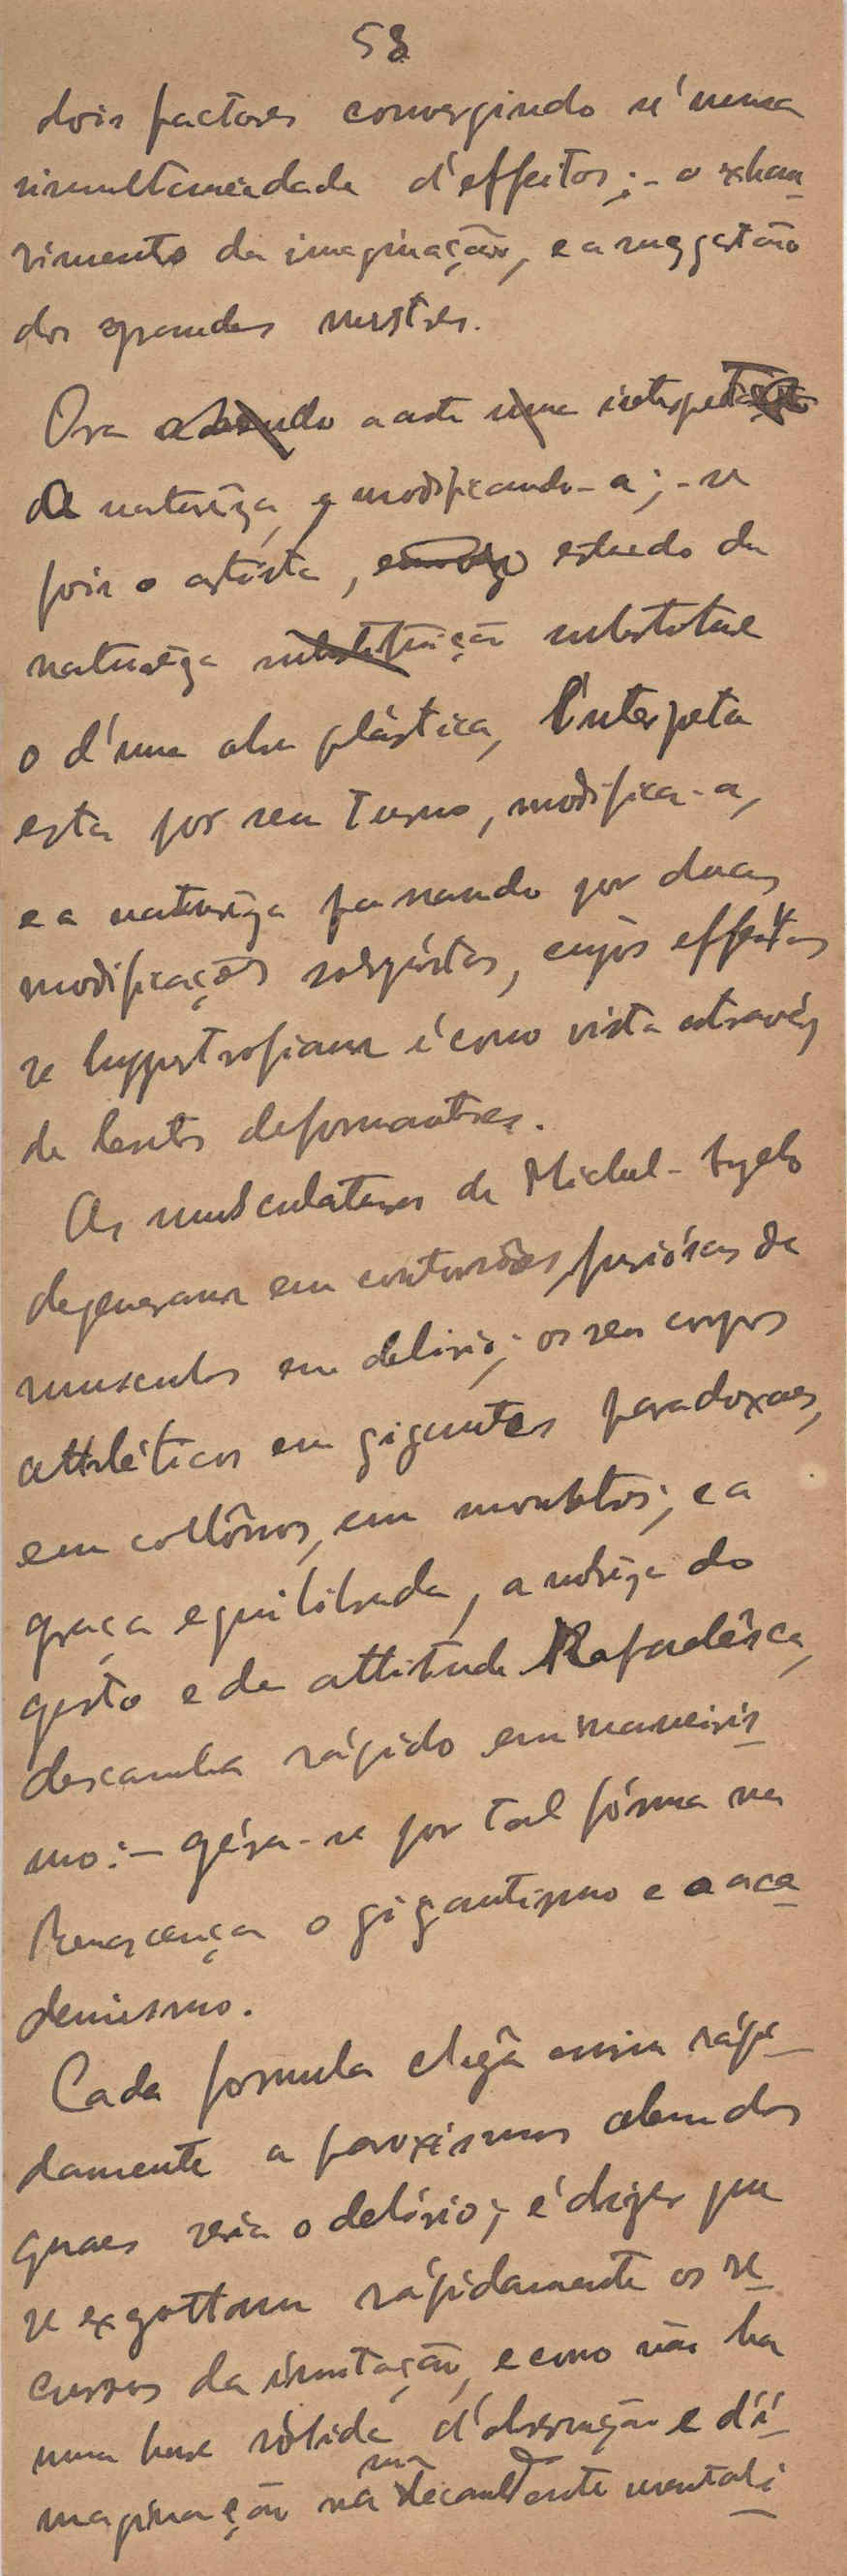 58
dois factores convergindo n'uma
simultaneidade d'effeitos; - o exhau
rimento da imaginação, e a suggestão
dos grandes mestres.
Ora a arte uma interpetação
da natureza, e modificando-a; - se
pois o artista, estudo da
natureza substituição substitue
o d'uma obra plástica, interpeta
esta por seu turno, modifica-a,
e a natureza passando por duas
modificações sobrpóstas, cujos effeitos
se hyppertrofiam é como vista atravéz
de lentes deformantes.
As musculaturas de Michel-Angelo
degeneram em contorsões furiósas de
musculos em delirio; os seus corpos
athléticos em gigantes paradoxaes,
em collôssos, em monstros; e a
graça equilibrada, a nobreza do
gesto e da attitude Rafaelêsca,
descamba rápido em maneiris
mo: - géra-se por tal fórma na
Renascença o gigantismo e o aca
demismo.
Cada formula chega assim rápi-
damente a paroxismos alem dos
quaes seria o delirio; é dizer que
se exgottam rápidamente os re
cursos da imitação, e como não ha
uma base sólida d'observação e d'i-
maginação na sua decadente mentali